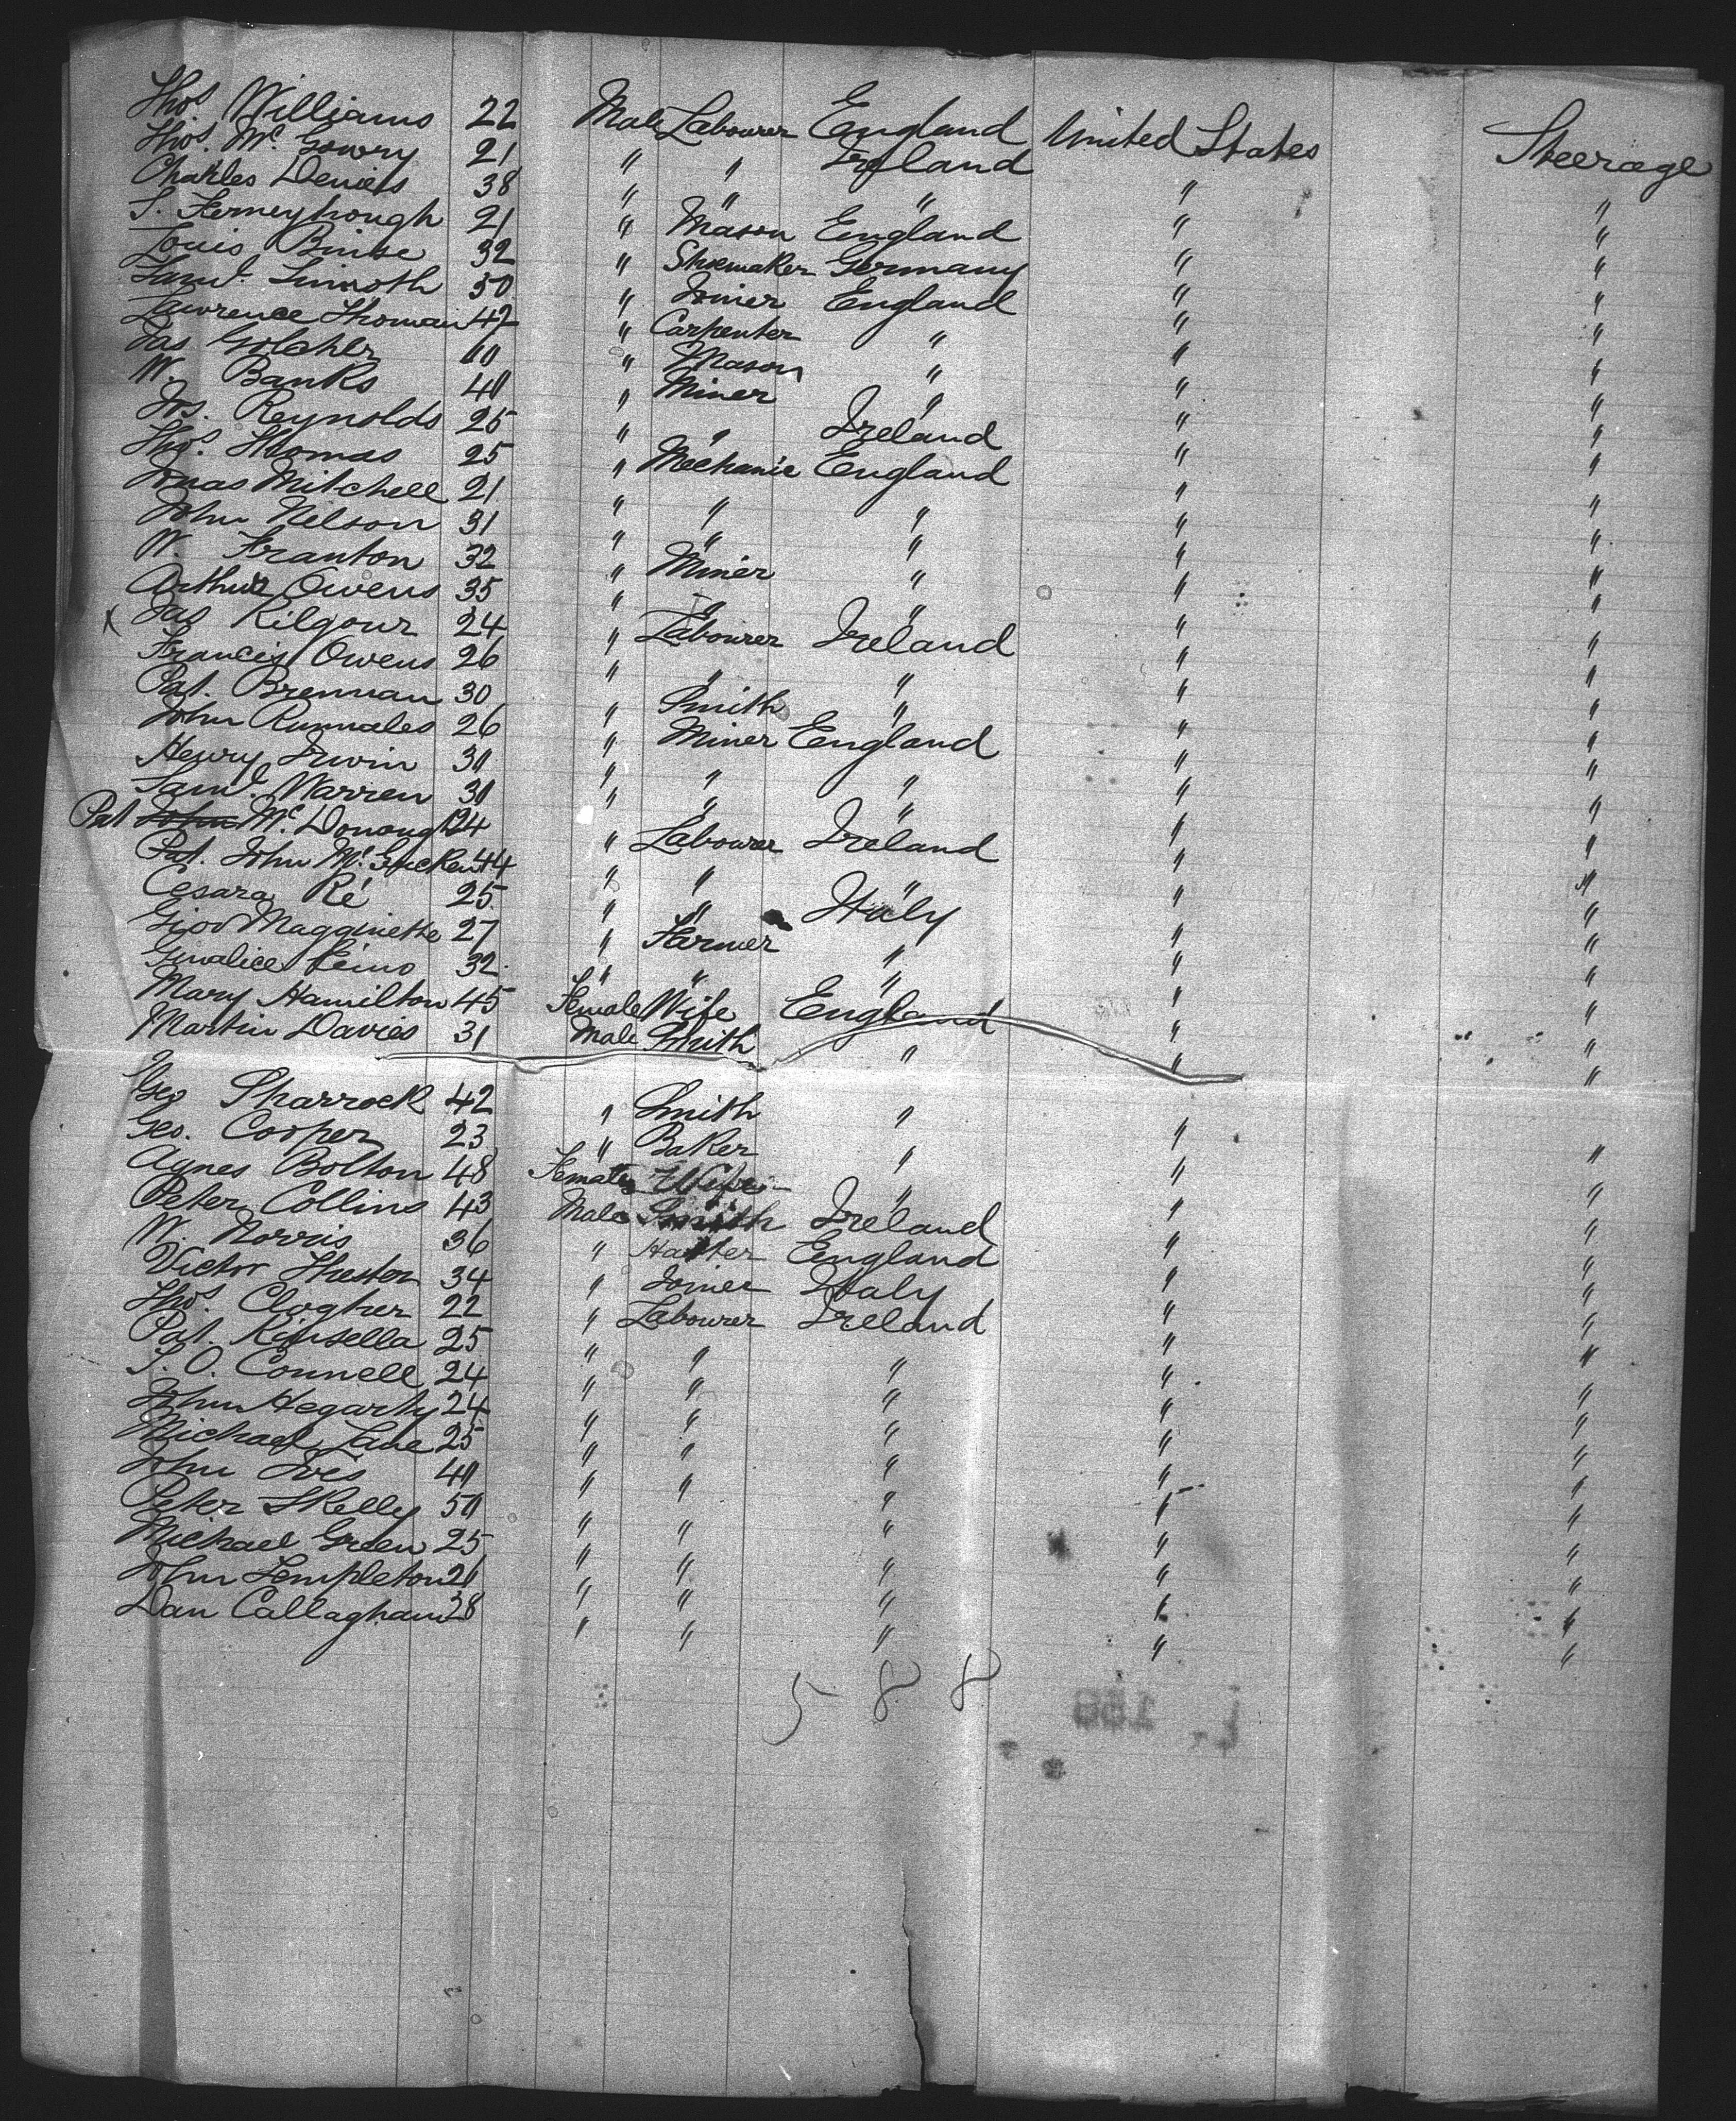 Thos. Williams 22 Male Labourer England United States Steerage
Thos. Mc. Gowry 21 " " Ireland " "
Charles Deniels 38 " " " " "
S. Ferneyhough 21 " Mason England " "
Louis 32 " Shoemaker Germany " "
Saml. 50 " Joiner England " "
Lawrence Thomas 42 " Carpenter " " "
Jas Golcher " Mason " " "
W. Banks 40 " Miner " " "
Jos. Reynolds 25 " " Ireland " "
Thos. Thomas 25 " Mechanic England " "
Jonas Mitchell 21 " " " " "
John Nelson 31 " " " " "
W. Franton 32 " Miner " " "
Arthur Owens 35 " " " " "
X Jas Kilgour 24 " Labourer Ireland " "
Francis Owens 26 " " " " "
Pat. Brennan 30 " Smith " " "
John Runnales 26 " Miner England " "
Henry Irwin 30 " " " " "
Saml. Warren 30 " " " " "
Pat John Mc. Donough 24 " Labourer Ireland " "
Pat. John Mc. Gucken 44 " " " " "
Cesara Ré 25 " " Italy " "
Giov Magginette 27 " Farmer " " "
32 " " " " "
Mary Hamilton 45 Female Wife England " "
Martin Davies 31 Male Smith " " "
Geo Sharrock 42 " Smith " " "
Geo. Cooper 23 " Baker " " "
Agnes Bolton 48 Female Wife " " "
Peter Collins 43 Male Smith Ireland " "
W. Norris 36 " Hatter England " "
Victor 34 " Joiner Italy " "
Thos. Clogher 22 " Labourer Ireland " "
Pat. Kinsella 25 " " " " "
S. O. Connell 24 " " " " "
John Hegarty 24 " " " " "
Michael Lane 25 " " " " "
John Ives 40 " " " " "
Peter Skelly 50 " " " " "
Michael Green 25 " " " " "
John Templeton 20 " " " " "
Dan Callaghan 38 " " " " "
588